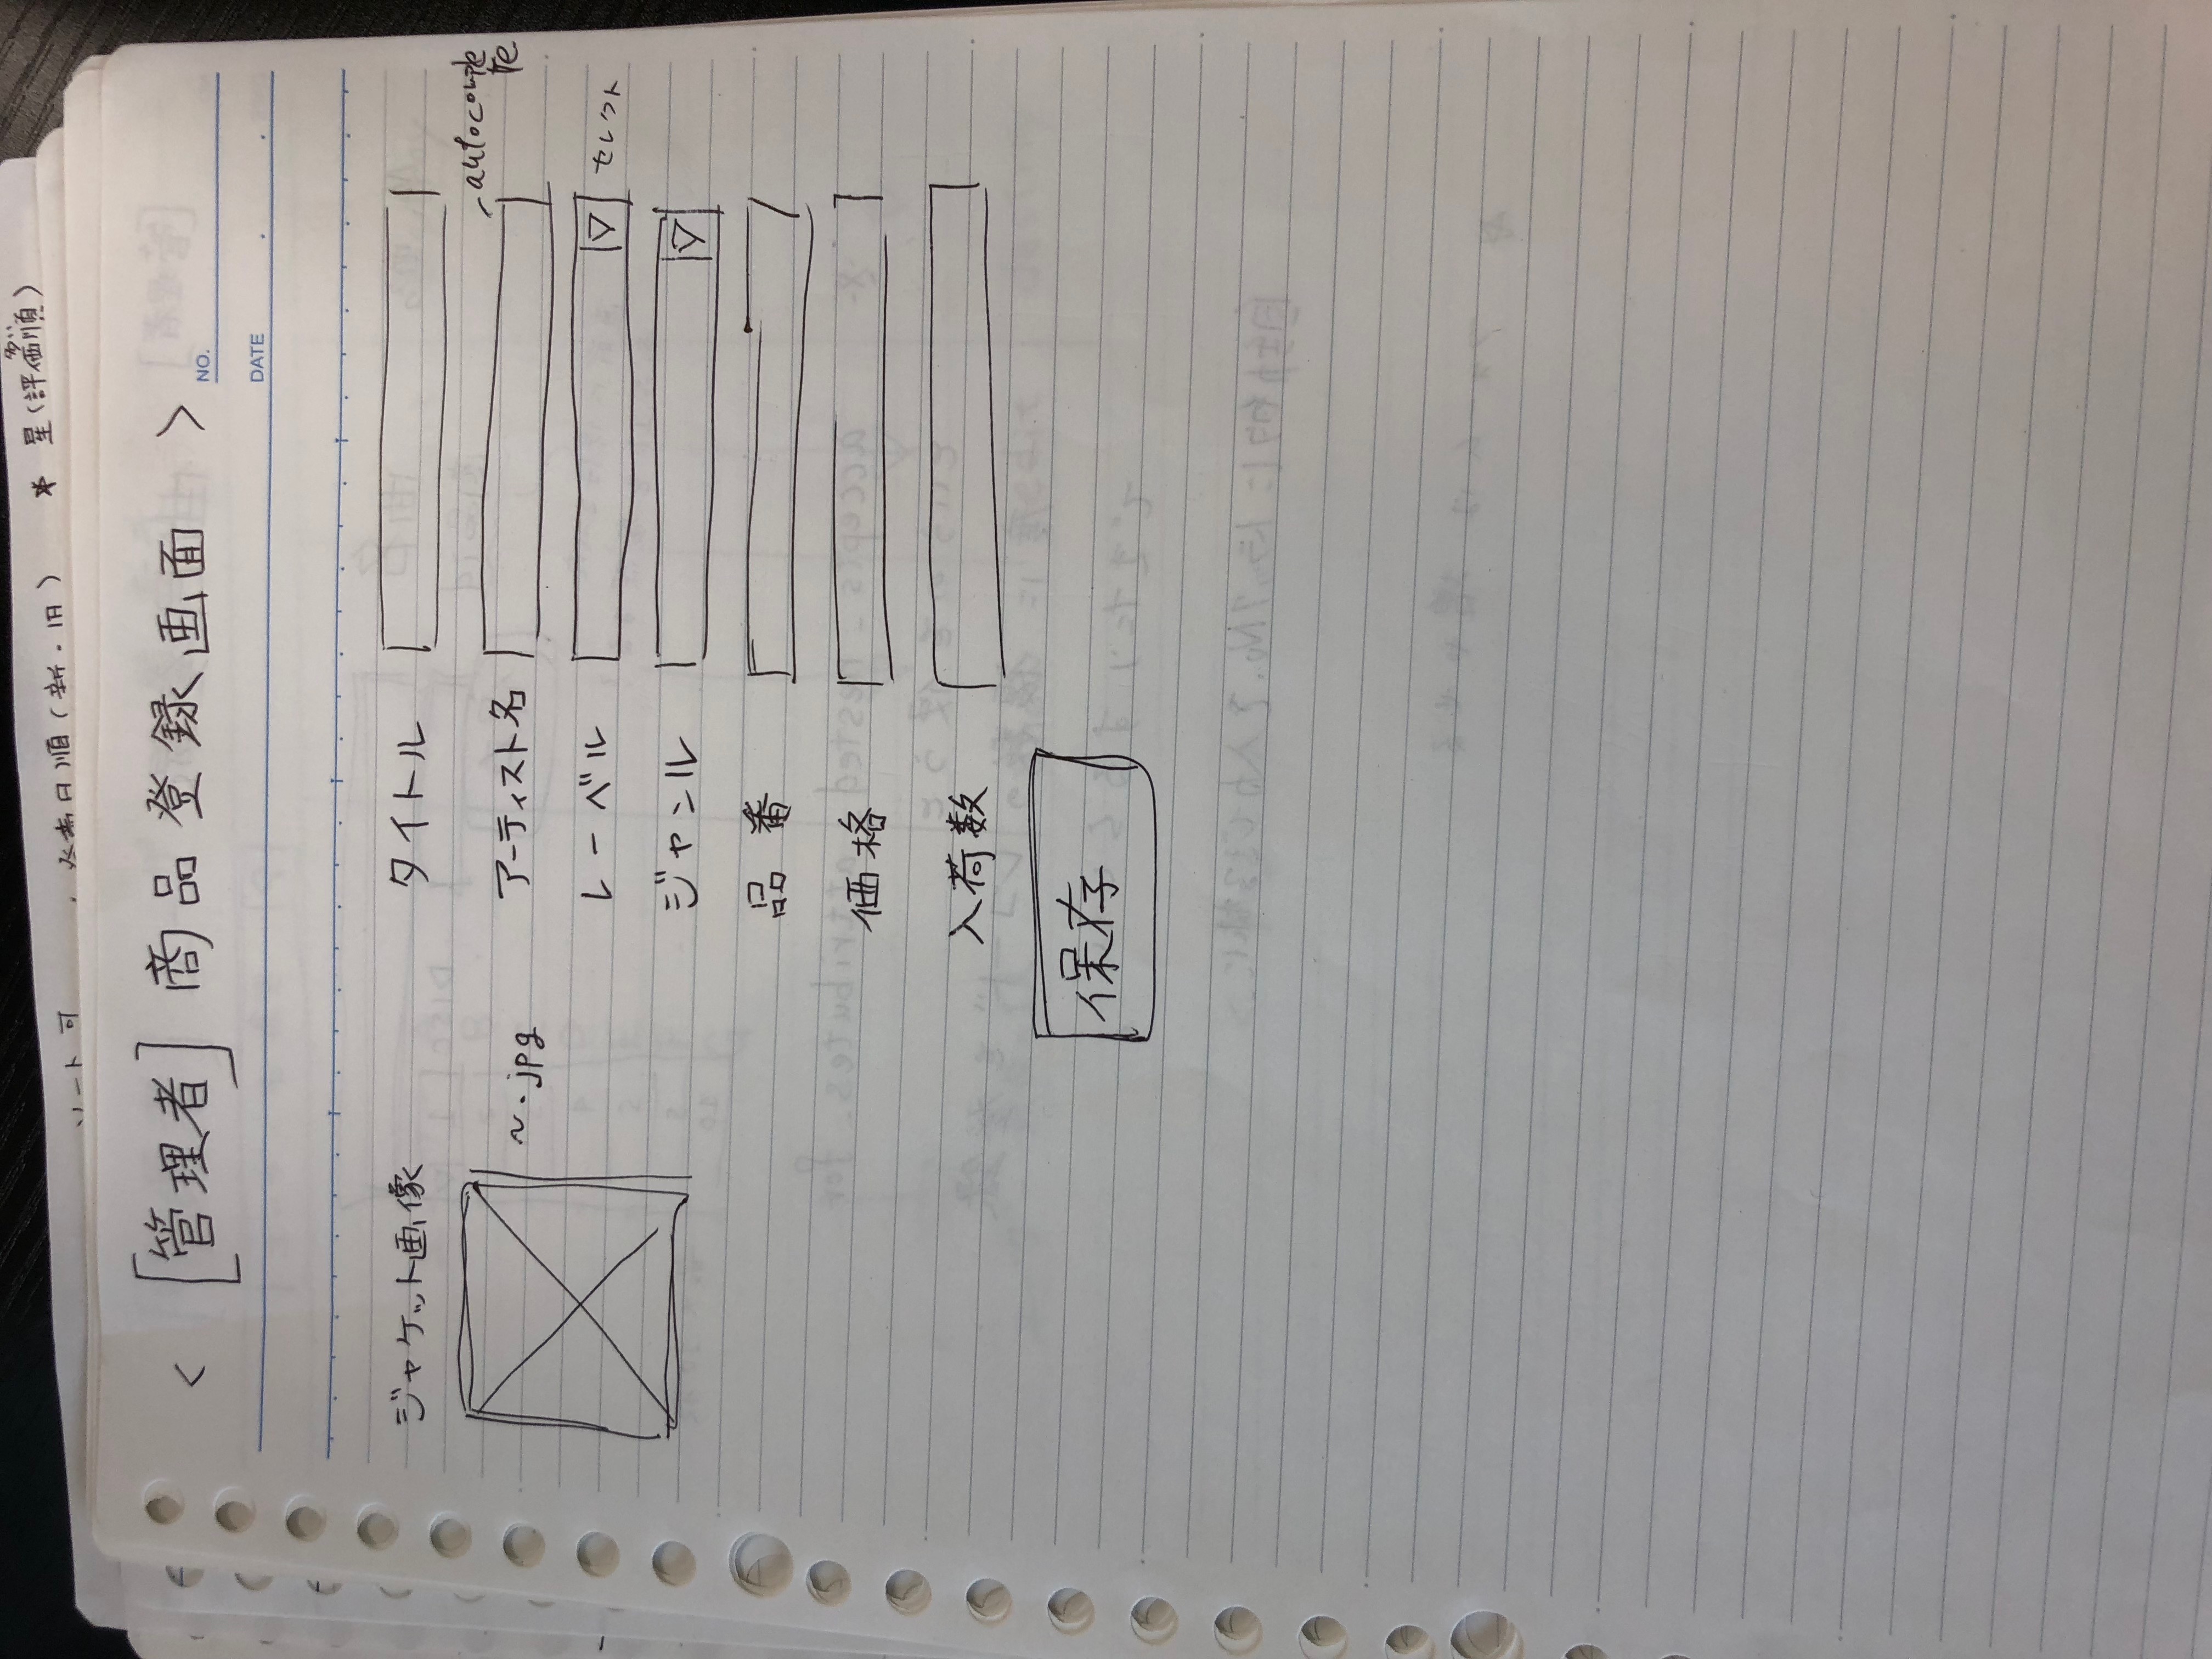 星(評価順)
発売日順(新・旧)
ソート可
< [管理者] 商品登録画面 >
NO.
DATE
ジャケット画像
~.jpg
タイトル
アーティスト名
autocomple
te
レーベル
セレクト
ジャンル
品番
価格
入荷数
保存